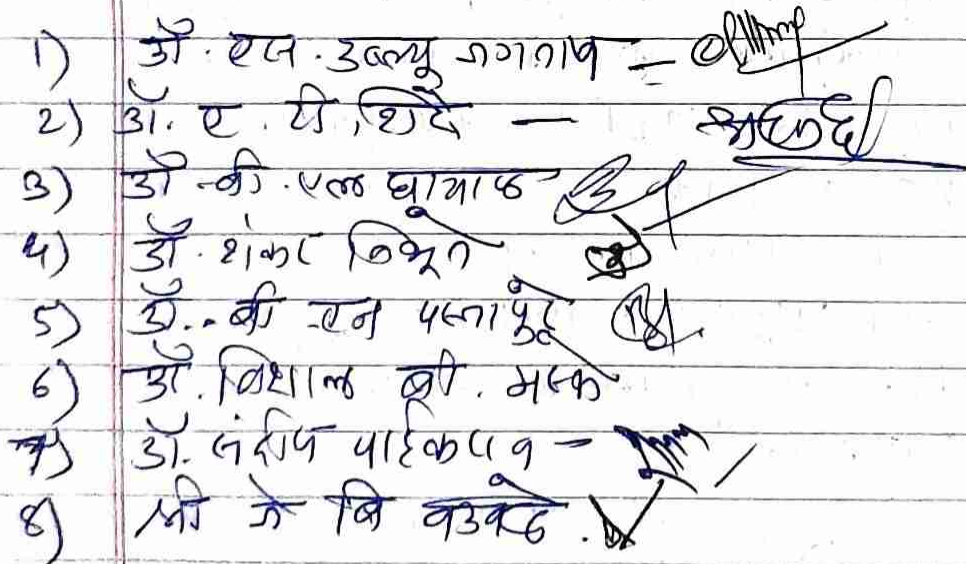 1) डॉ. एल. डब्ल्यू जगताप —
2) डॉ. ए. पी. शिंदे —
3) डॉ. बी. एल घायाळ
4) डॉ. शंकर विभुते
5) डॉ.. बी एन पस्तापुरे
6) डॉ. विशाल बी. मस्के
7) डॉ. संदीप पाईकराव —
8) श्री जे बि